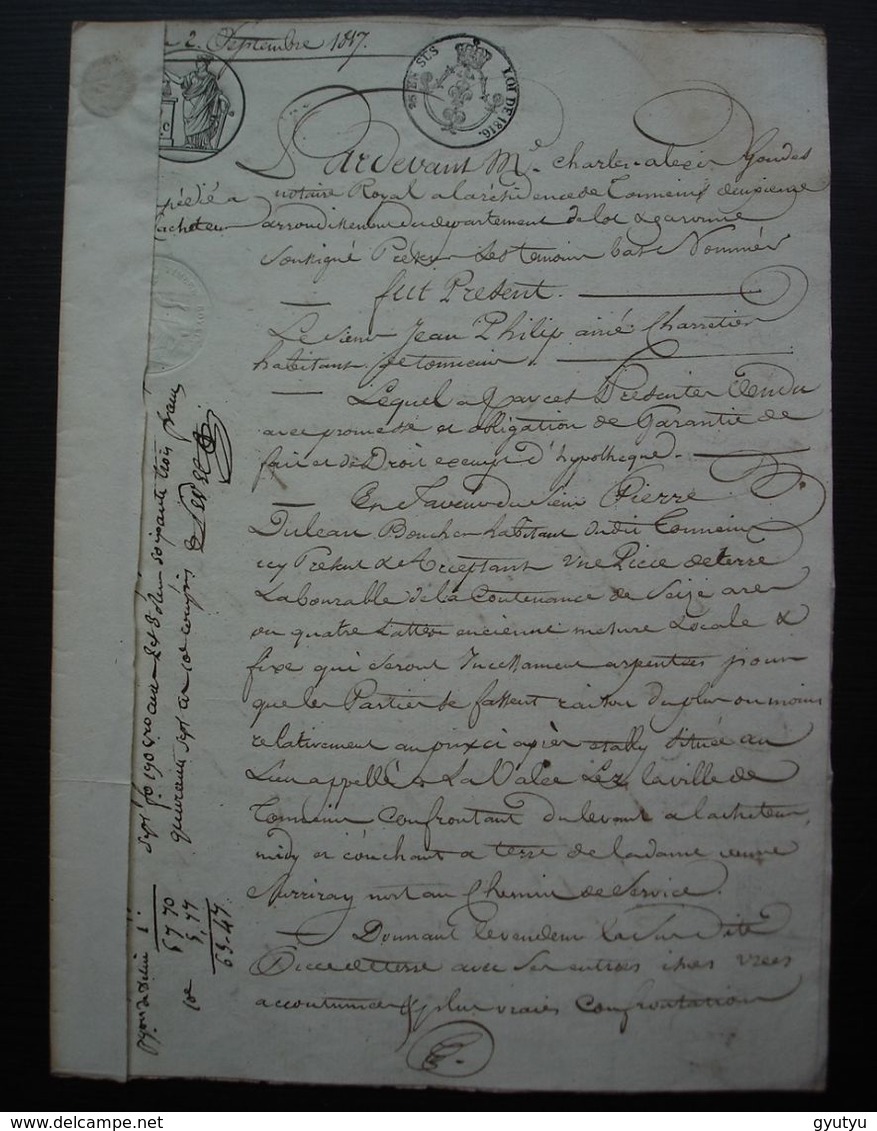 2. Septembre 1817.
25 EN SUS LOI DE 1816.
Pardevant Me. Charles alexis Goudes
notaire Royal a la résidence de Tonneins deuxieme
arrondissement du departement de lot & garonne
Soussigné Presens Les temoins bas Nommés
fut Present.
Le Sieur Jean Philip ainé Charretier
habitant de tonneins
Lequel a Par ces Presentes Vendu
avec promesse et obligation de Garantie de
fait et de Droit excepté d'hypotheque.
En faveur du Sieur Pierre
Duleau Boucher habitant dudit Tonneins
icy Present & Acceptant Une Piece de terre
Labourable de la Contenance de Seize ares
ou quatre Lattes ancienne mesure Locale &
fixe qui seront Incessament arpentées pour
que les Parties se fassent raison du plus ou moins
relativement au prix ci après etably Située au
Lieu appellé La Valée Lez la ville de
Tonneins Confrontant du levant a l'acheteur,
midy et couchant a terre de la dame veuve
nort au Chemin de Service.
Donnant le vendeur la Sus Dite
Piece de terre avec Ses entrées issues
accoutumées & plus vraies Confrontations
pédié a
l'acheteur
soixante trois francs
quarante sept ce 10e compris
57 70
5, 77
10e
63-47
www.delcampe.net
gyutyu